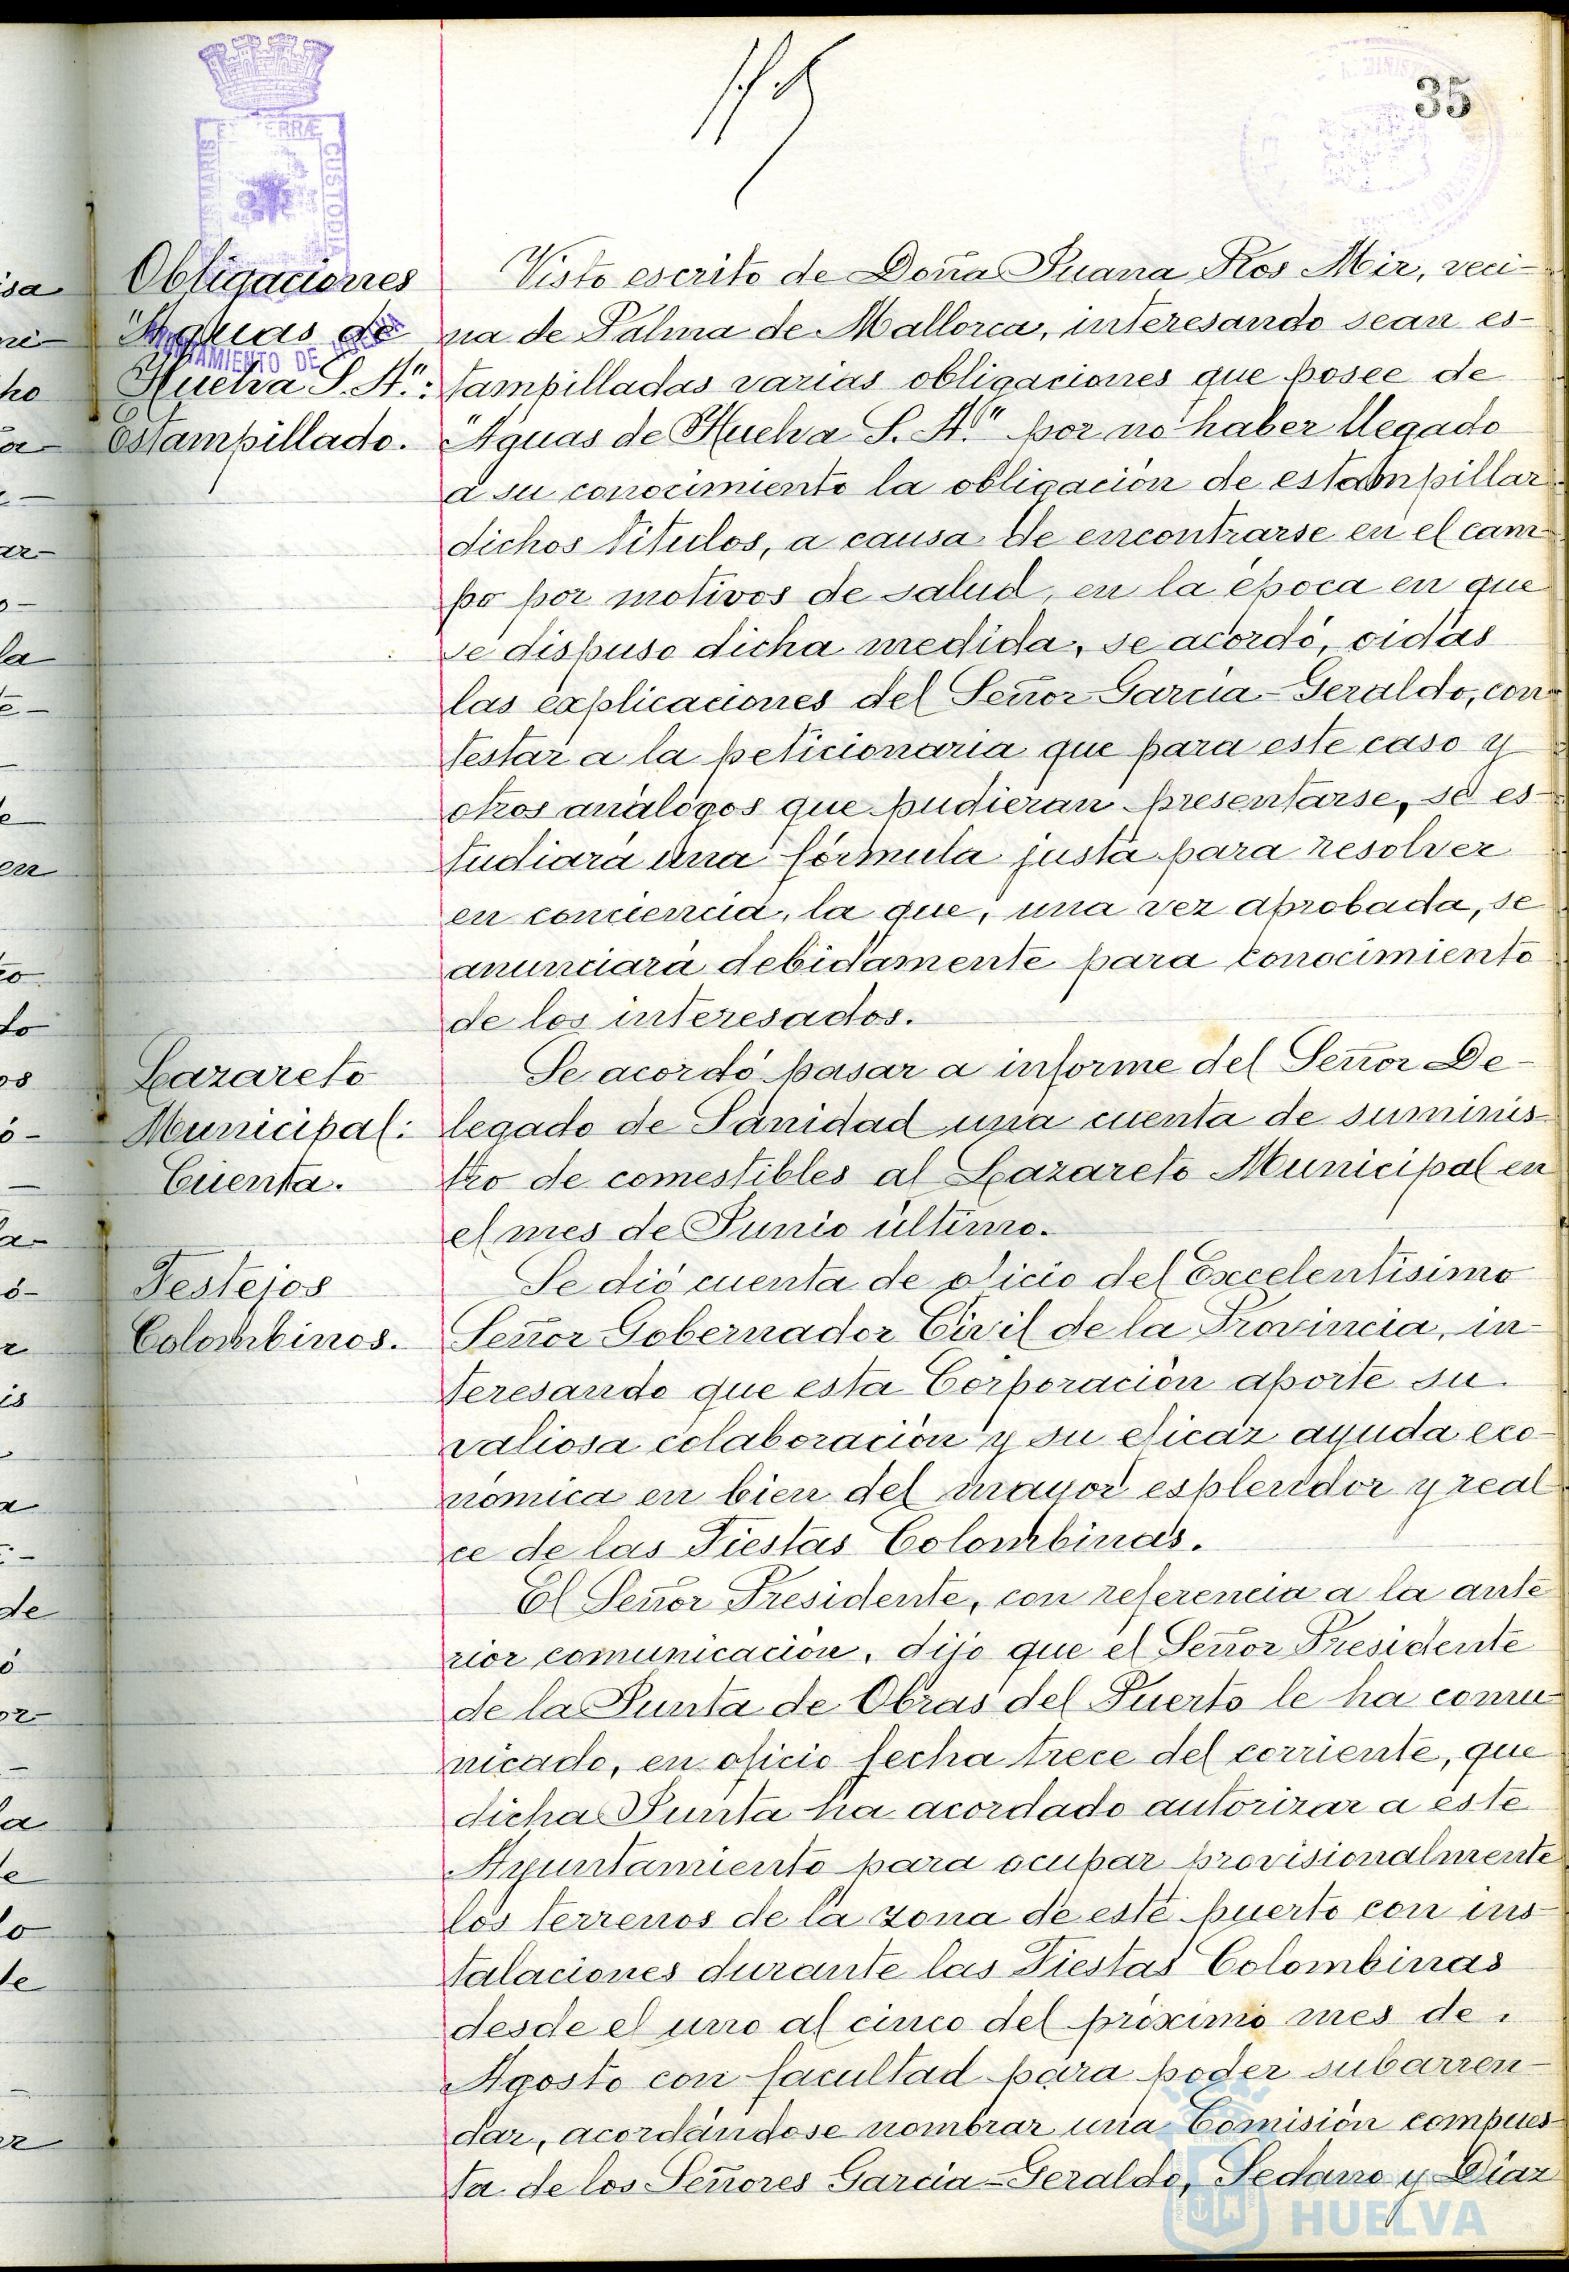 35
Obligaciones
"Aguas de
Huelva S. A.":
Estampillado.
Visto escrito de Doña Juana Ros Mir, veci-
na de Palma de Mallorca, interesando sean es-
tampilladas varias obligaciones que posee de
"Aguas de Huelva S. A." por no haber llegado
a su conocimiento la obligación de estampillar
dichos titulos, a causa de encontrarse en el cam-
po por motivos de salud, en la época en que
se dispuso dicha medida, se acordó, oidas
las explicaciones del Señor Garcia-Geraldo, con-
testar a la peticionaria que para este caso y
otros análogos que pudieran presentarse, se es-
tudiará una fórmula justa para resolver
en conciencia, la que, una vez aprobada, se
anunciará debidamente para conocimiento
de los interesados.
Lazareto
Municipal:
Cuenta.
Se acordó pasar a informe del Señor De-
legado de Sanidad una cuenta de suminis-
tro de comestibles al Lazareto Municipal en
el mes de Junio último.
Festejos
Colombinos.
Se dió cuenta de oficio del Excelentisimo
Señor Gobernador Civil de la Provincia, in-
teresando que esta Corporación aporte su
valiosa colaboración y su eficaz ayuda eco-
nómica en bien del mayor esplendor y real-
ce de las Fiestas Colombinas.
El Señor Presidente, con referencia a la ante-
rior comunicación, dijo que el Señor Presidente
de la Junta de Obras del Puerto le ha comu-
nicado, en oficio fecha trece del corriente, que
dicha Junta ha acordado autorizar a este
Ayuntamiento para ocupar provisionalmente
los terrenos de la zona de este puerto con ins-
talaciones durante las Fiestas Colombinas
desde el uno al cinco del próximo mes de
Agosto con facultad para poder subarren-
dar, acordándose nombrar una Comisión compues-
ta de los Señores Garcia-Geraldo, Sedano y Díaz
HUELVA